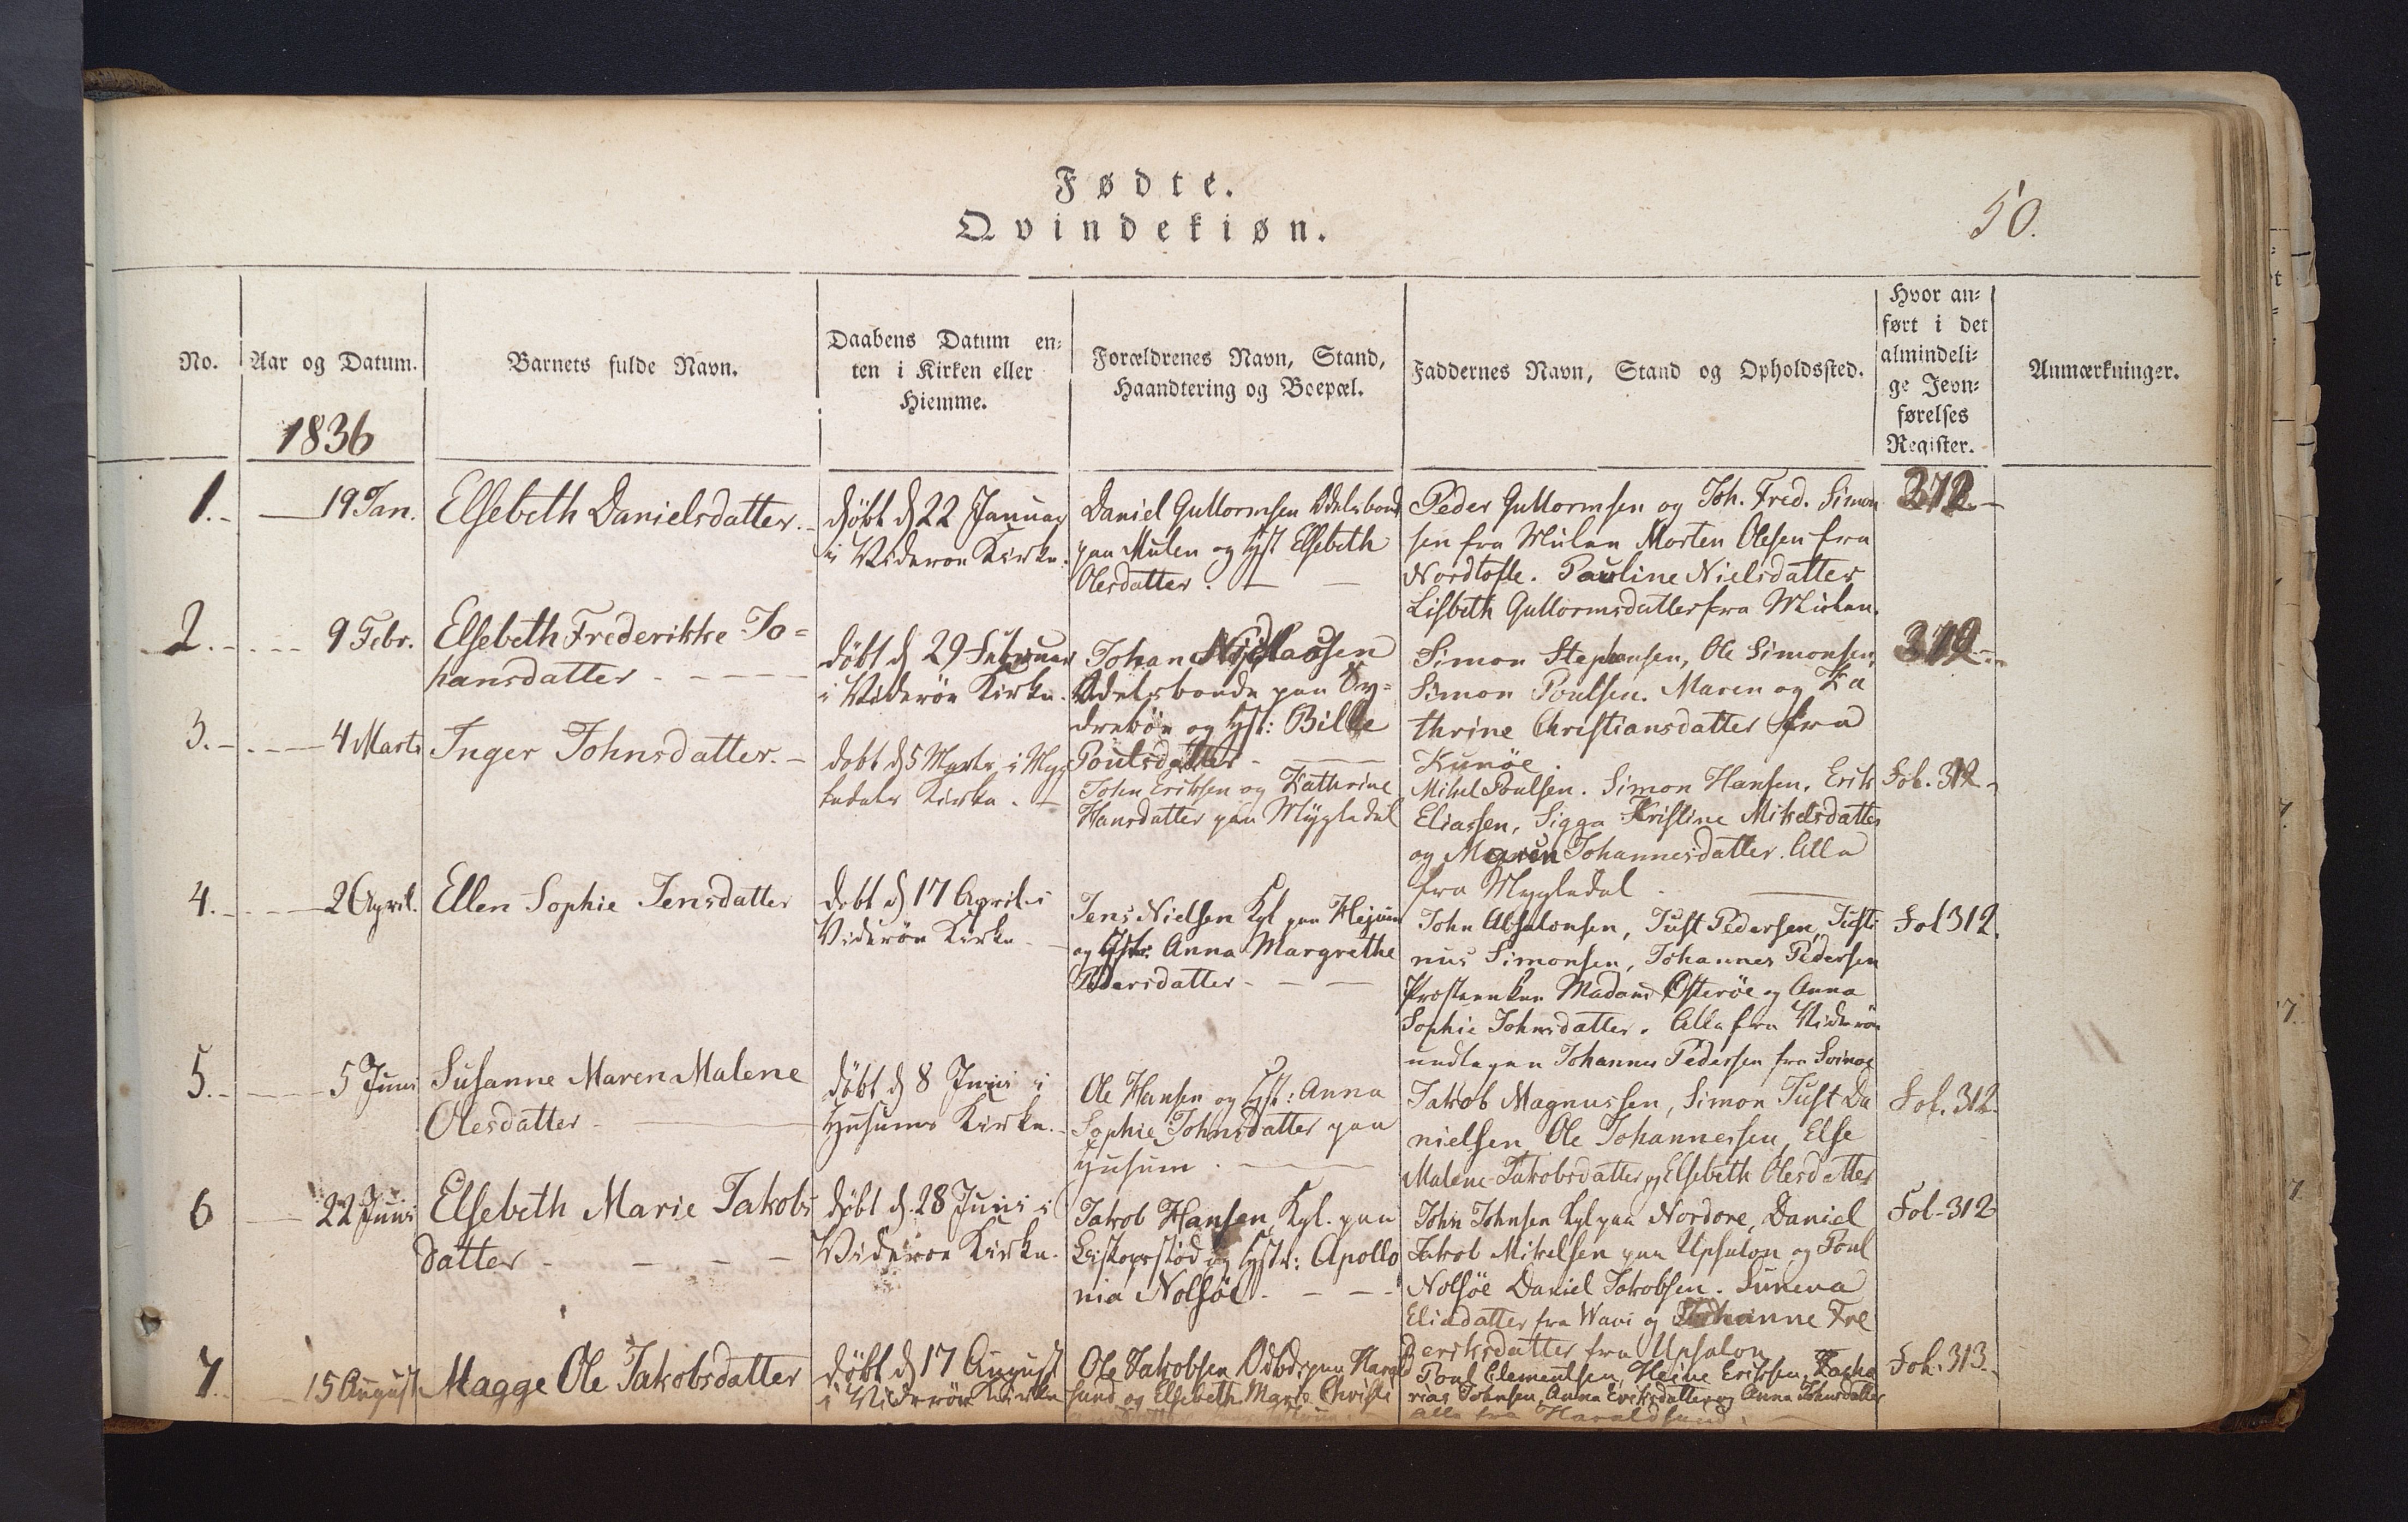 Fødte.
Qvindekiøn.
50.
No.
Aar og Datum.
1836
Barnets fulde Navn.
Daabens Datum en-
ten i Kirken eller
Hiemme.
Forældrenes Navn, Stand,
Haandtering og Boepæl.
Faddernes Navn, Stand og Opholdssted.
Hvor an-
ført i det
almindeli-
ge Jevn-
førelses
Register.
Anmærkninger.
1.
19 Jan.
Elsebeth Danielsdatter.
døbt d 22 Januar
i Videroe Kirke.
Daniel Guttormsen Odelsbond
paa Mulen og Hst Elsebeth
Olesdatter.
Peder Guttormsen og Joh. Fred. Simon
sen fra Mulen Morten Olesen fra
Nordtofte. Pauline Nielsdatter
Lisbeth Guttormsdatter fra Mulen.
312.
2.
9 Febr.
Elsebeth Frederikke Jo=
hansdatter
døbt d 29 Februar
i Viderøe Kirke.
Johan
Odelsbonde paa Sy=
drebøe og Hst: Bille
Poulsdatter
Simon Stephansen, Ole Simonsen,
Simon Poulsen. Maren og Ka
thrine Christiansdatter fra
Kunöe.
312
3.
4 Marts
Inger Johnsdatter.
døbt d 5 Marts i Myg
ledals Kirke.
John Eriksen og Kathrine
Hansdatter paa Mygledal
Mikel Poulsen. Simon Hansen. Erik
Eliassen, Sigga Kristine Mikelsdatter
og Maren Johannesdatter. Alle
fra Mygledal
Fol. 312
4.
2 April.
Ellen Sophie Jensdatter
døbt d 17 April i
Viderøe Kirke
Jens Nielsen Kgl paa
og Hstr: Anna Margrethe
Pedersdatter
John Absalonsen, Just Pedersen, Justi
nus Simonsen, Johannes Pedersen
Provstenken Madame Østerøe og Anna
Sophie Johnsdatter. Alle fra Viderøe
undtagen Johannes Pedersen fra Svinøe
Fol 312.
5.
5 Juni
Susanne Maren Malene
Olesdatter
døbt d 8 Juni i
Husums Kirke.
Ole Hansen og Hst: Anna
Sophie Johnsdatter paa
Husum.
Jakob Magnussen, Simon Just Da
nielsen, Ole Johannessen, Else
Malene Jakobsdatter og Elsebeth Olesdatter
Fol. 312.
6
22 Juni
Elsebeth Marie Jakobs
datter
døbt d. 28 Juni i
Videroe Kirke.
Jakob Hansen, Kgl. paa
Biskopsstød og Hstr: Apollo
nia Nolsöe
John Johnsen Kgl paa Nordore, Daniel
Jakob Mikelsen paa Upsalon og Poul
Nolsöe Daniel Jakobsen. Suneva
Eliadatter fra Wavi og Johanne Fre
deriksdatter fra Upsalon
Fol. 312
7
15 August
Magge Ole Jakobsdatter
døbt d 17 August
i Viderøe Kirke
Ole Jakobsen Odbd: paa Harald
sund og Elsebeth Marie Christi
Poul Clementsen, Heine Eriksen, Zacha
rias Johnsen, Anna Eriksdatter og Anna Johansdatter
alle fra Haraldsund.
Fol. 313